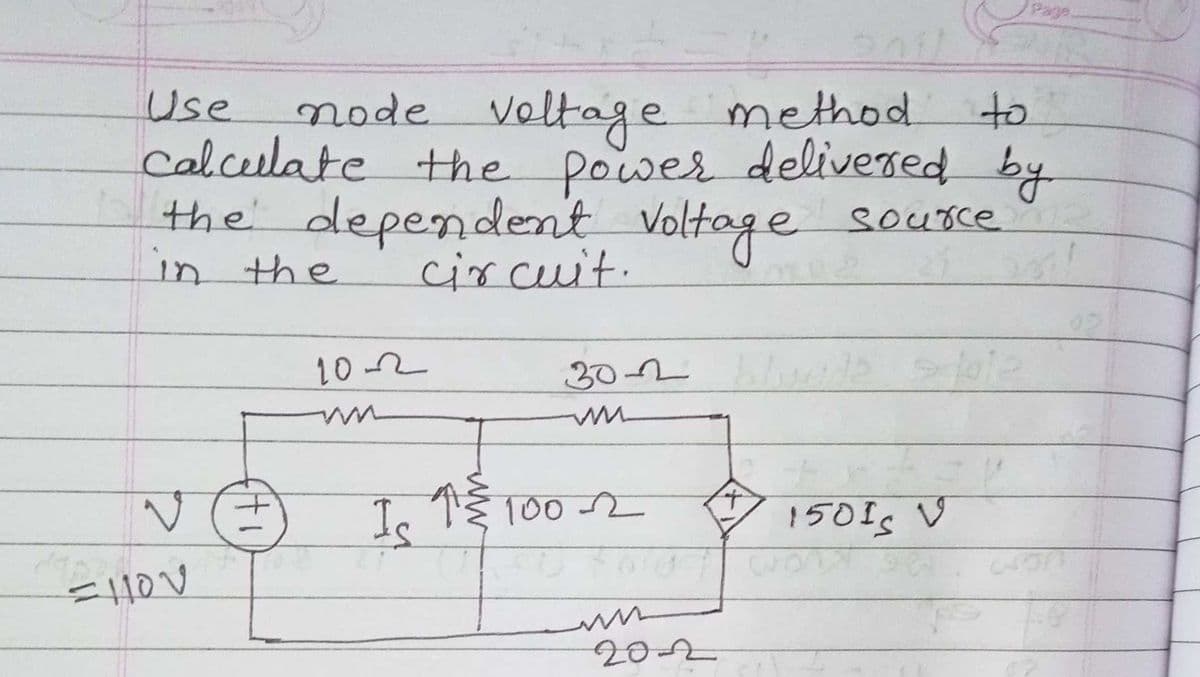 Page
Use node voltage method to
calculate the power delivered by
the dependent voltage source
in the circuit.
10Ω 30Ω
V + - Is ↑ 100Ω + - 150Is V
=110V
20Ω